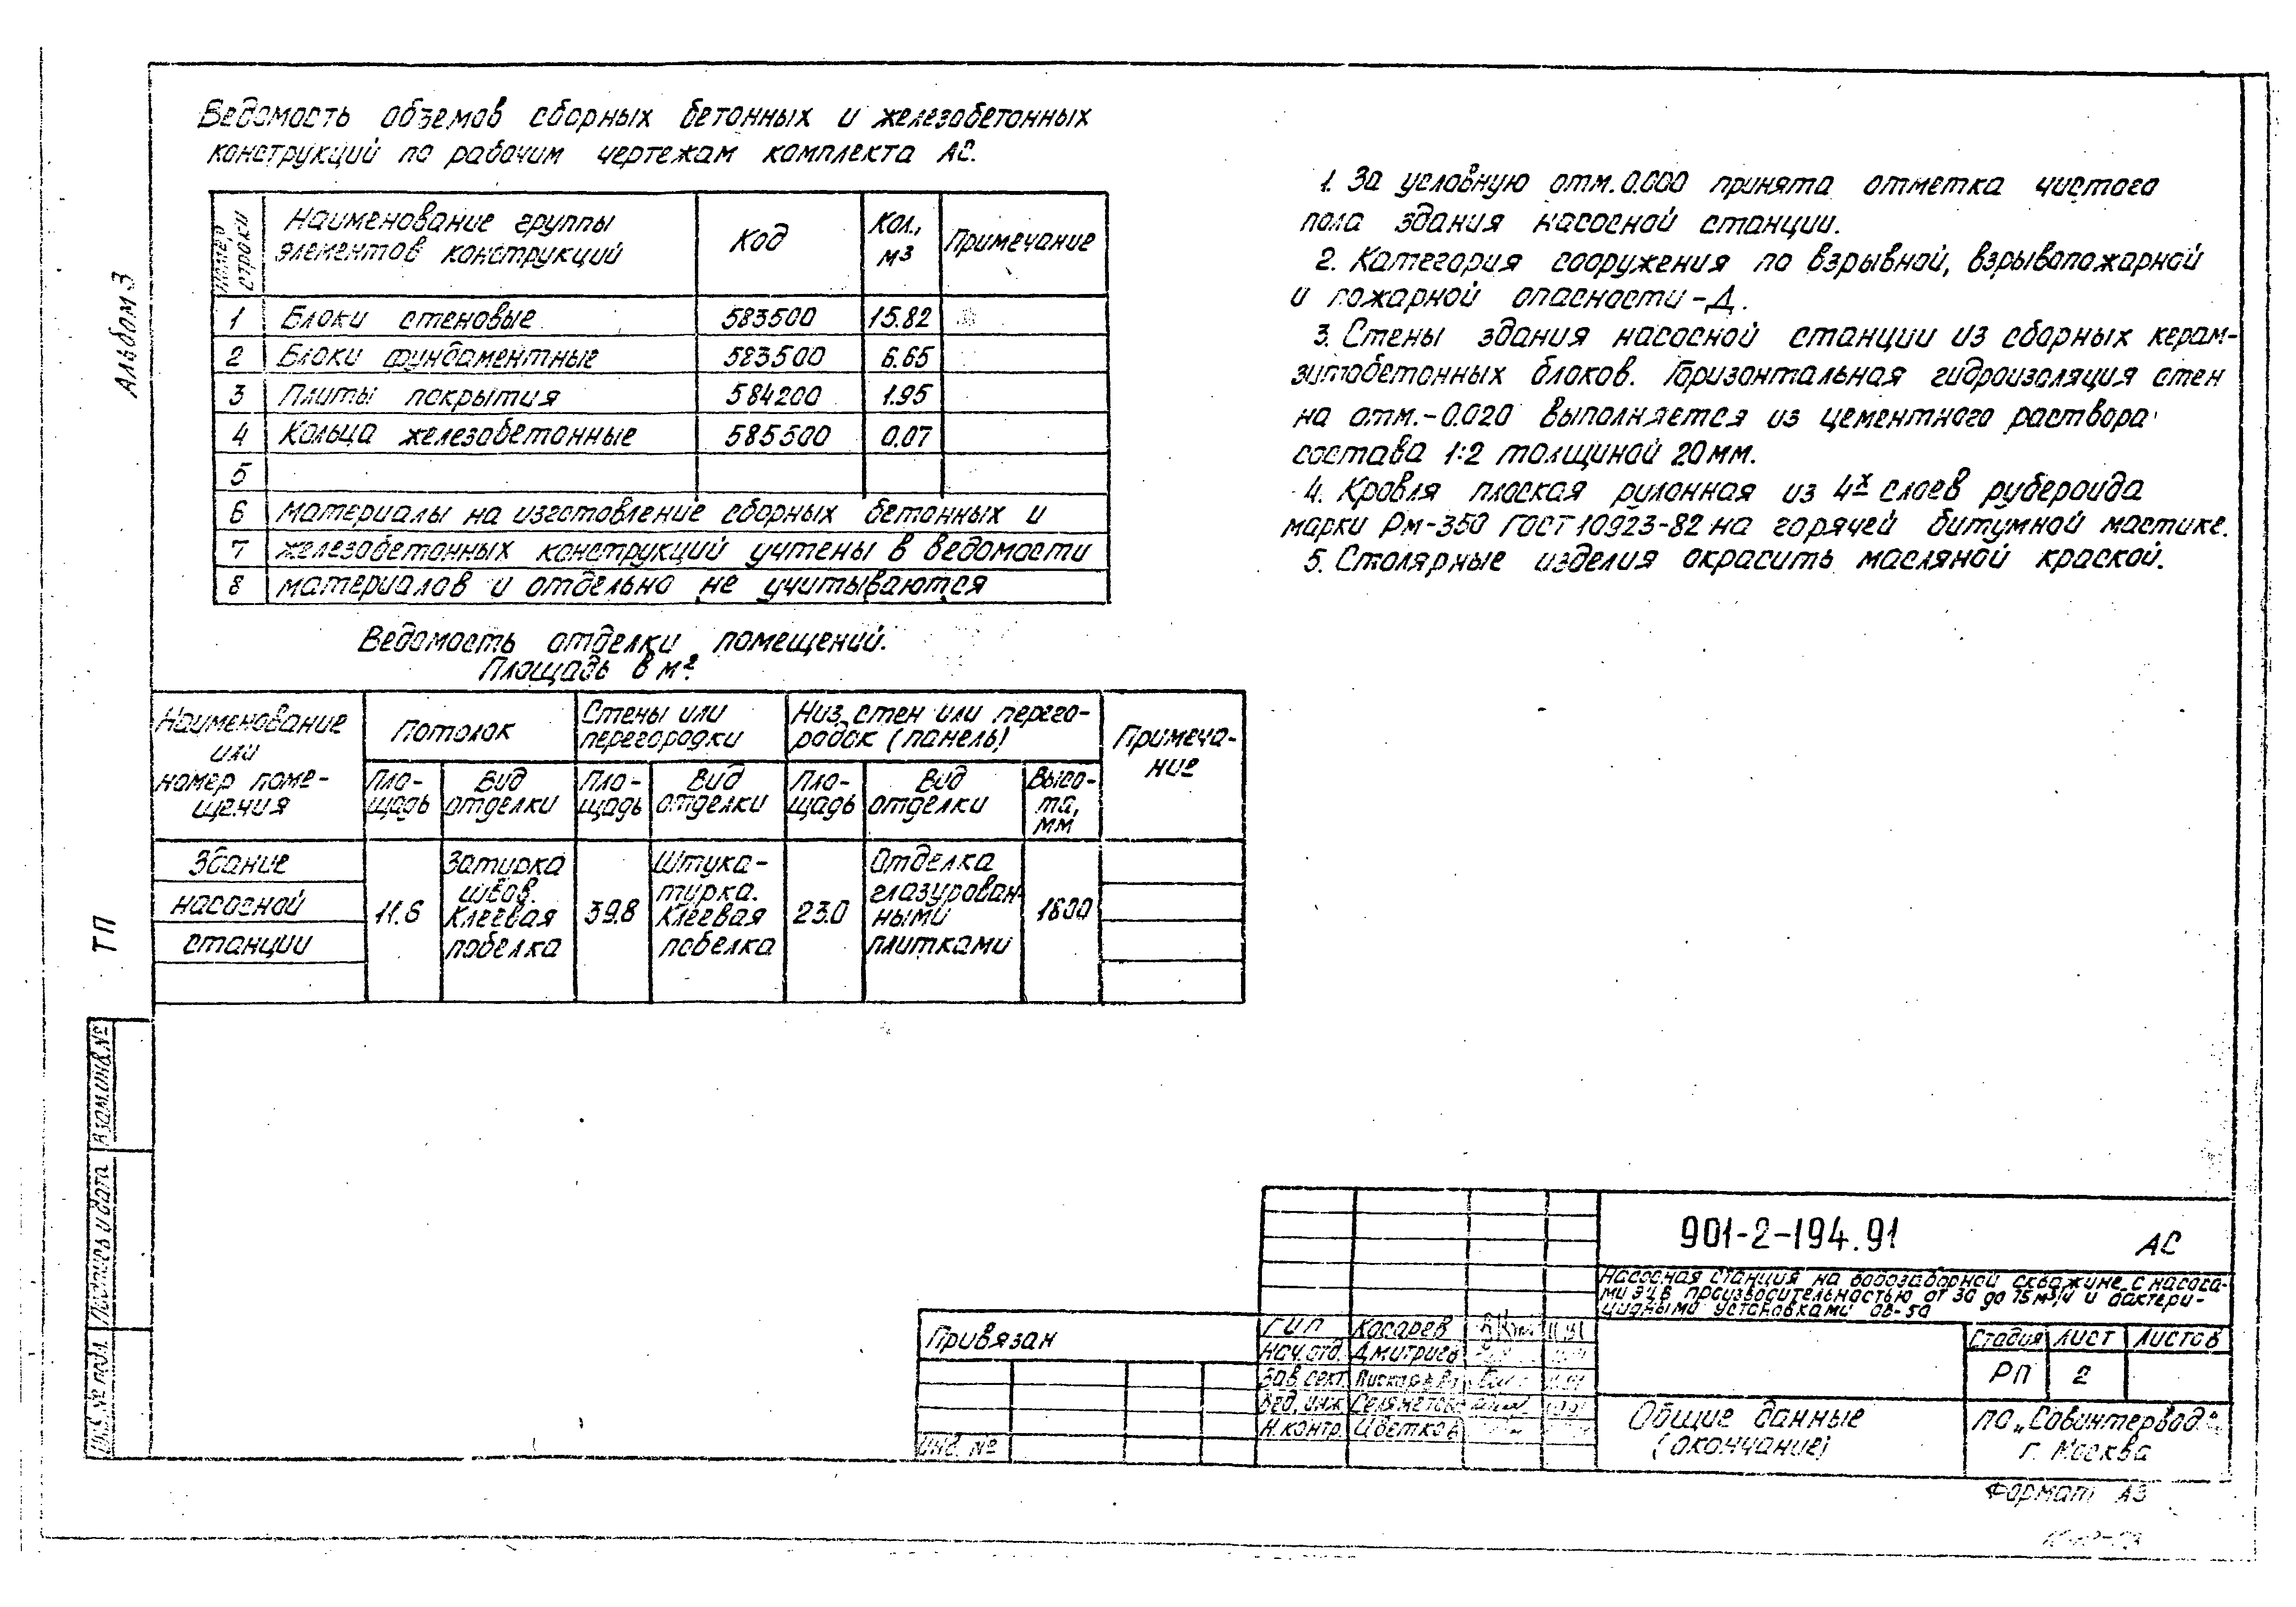 Альбом 3
ТП
Ведомость объемов сборных бетонных и железобетонных
конструкций по рабочим чертежам комплекта АС.
Номер строки
Наименование группы элементов конструкций
Код
Кол., м3
Примечание
1 Блоки стеновые 583500 15.82
2 Блоки фундаментные 583500 6.65
3 Плиты покрытия 584200 1.95
4 Кольца железобетонные 585500 0.07
5
6 материалы на изготовление сборных бетонных и
7 железобетонных конструкций учтены в ведомости
8 материалов и отдельно не учитываются
Ведомость отделки помещений.
Площадь в м²
Наименование или номер поме-щения
Потолок
Стены или перегородки
Низ стен или перего-родок (панель)
Примеча-ние
Пло-щадь
Вид отделки
Пло-щадь
Вид отделки
Пло-щадь
Вид отделки
Высо-та, мм
Здание
насосной
станции
11.6
Затирка
швов.
Клеевая
побелка
39.8
Штука-
турка.
Клеевая
побелка
23.0
Отделка
глазурован-
ными
плитками
1800
1. За условную отм. 0.000 принята отметка чистого
пола здания насосной станции.
2. Категория сооружения по взрывной, взрывопожарной
и пожарной опасности - Д.
3. Стены здания насосной станции из сборных керам-
зитобетонных блоков. Горизонтальная гидроизоляция стен
на отм. -0.020 выполняется из цементного раствора
состава 1:2 толщиной 20 мм.
4. Кровля плоская рулонная из 4х слоев рубероида
марки Рм-350 ГОСТ 10923-82 на горячей битумной мастике.
5. Столярные изделия окрасить масляной краской.
Взам.инв.№
Подпись и дата
Инв.№ подл.
901-2-194.91 АС
Насосная станция на водозаборной скважине с насоса-
ми ЭЦВ производительностью от 30 до 75 м³/ч и бактери-
цидными установками ОВ-50
Привязан
Инв. №
ГИП Косарев
Нач.отд. Дмитриев
Зав. сект.
Вед. инж.
Н.контр. Цветков
Стадия Лист Листов
РП 2
Общие данные
(окончание)
ПО „Совинтервод"
г. Москва
Формат А3